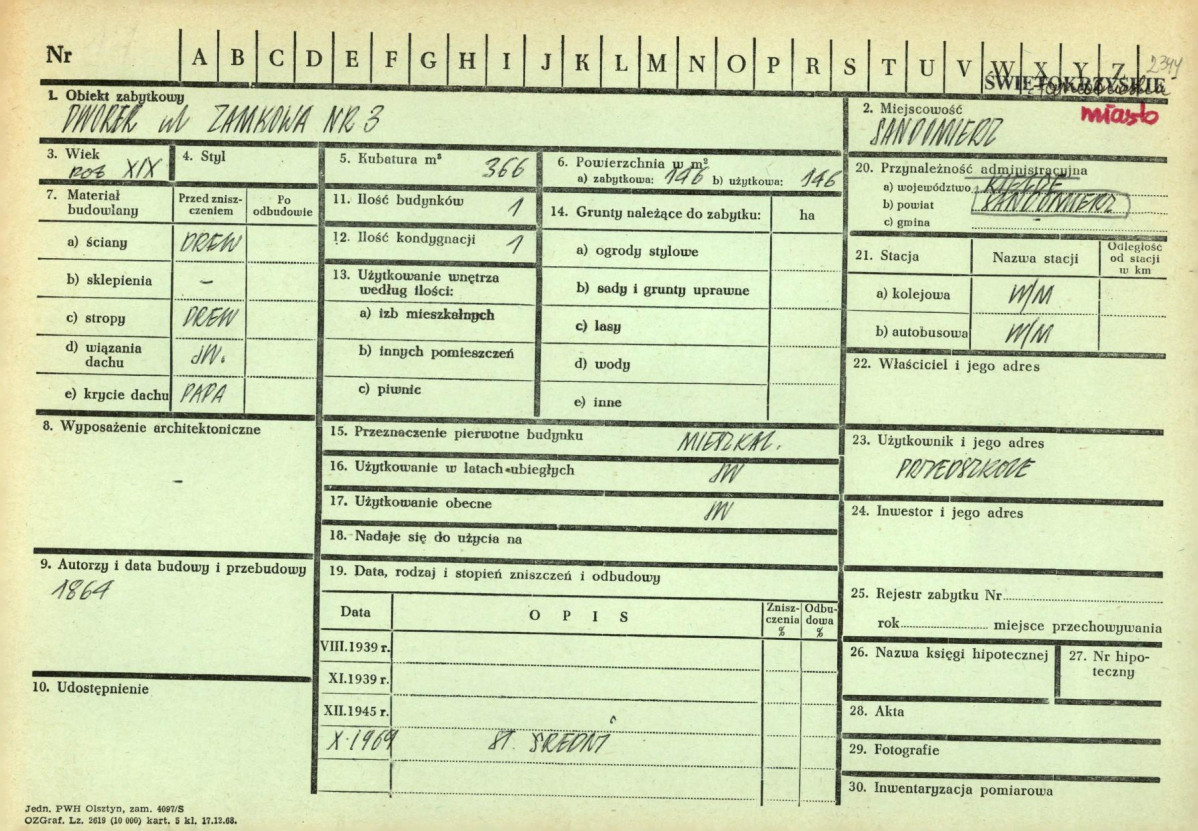 Nr A B C D E F G H I J K L M N O P R S T U V W X Y Z 2344
ŚWIĘTOKRZYSKIE
1. Obiekt zabytkowy
DWOREK ul ZAMKOWA NR 3
2. Miejscowość
miasto
SANDOMIERZ
3. Wiek
poł XIX
4. Styl
5. Kubatura m³ 366
6. Powierzchnia w m²
a) zabytkowa: 146 b) użytkowa: 146
20. Przynależność administracyjna
a) województwo KIELCE
b) powiat SANDOMIERZ
c) gmina
7. Materiał budowlany
Przed zniszczeniem
Po odbudowie
a) ściany DREW
b) sklepienia –
c) stropy DREW
d) wiązania dachu JW.
e) krycie dachu PAPA
11. Ilość budynków 1
12. Ilość kondygnacji 1
13. Użytkowanie wnętrza
według ilości:
a) izb mieszkalnych
b) innych pomieszczeń
c) piwnic
14. Grunty należące do zabytku: ha
a) ogrody stylowe
b) sady i grunty uprawne
c) lasy
d) wody
e) inne
21. Stacja
Nazwa stacji
Odległość
od stacji
w km
a) kolejowa W/M
b) autobusowa W/M
22. Właściciel i jego adres
8. Wyposażenie architektoniczne
–
15. Przeznaczenie pierwotne budynku MIESZKAL.
16. Użytkowanie w latach ubiegłych JW
17. Użytkowanie obecne JW
18. Nadaje się do użycia na
23. Użytkownik i jego adres
PRZEDSZKOLE
24. Inwestor i jego adres
9. Autorzy i data budowy i przebudowy
1864
10. Udostępnienie
19. Data, rodzaj i stopień zniszczeń i odbudowy
Data OPIS
Zniszczenia %
Odbudowa %
VIII.1939 r.
XI.1939 r.
XII.1945 r.
X.1969 ST. ŚREDNI
25. Rejestr zabytku Nr
rok miejsce przechowywania
26. Nazwa księgi hipotecznej
27. Nr hipoteczny
28. Akta
29. Fotografie
30. Inwentaryzacja pomiarowa
Jedn. PWH Olsztyn, zam. 4097/S
OZGraf. Lz. 2619 (10 000) kart. 5 kl. 17.12.68.